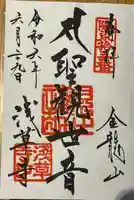 奉拝
金龍山
聖観世音
浅草寺
令和六年
六月二九日
浅草寺